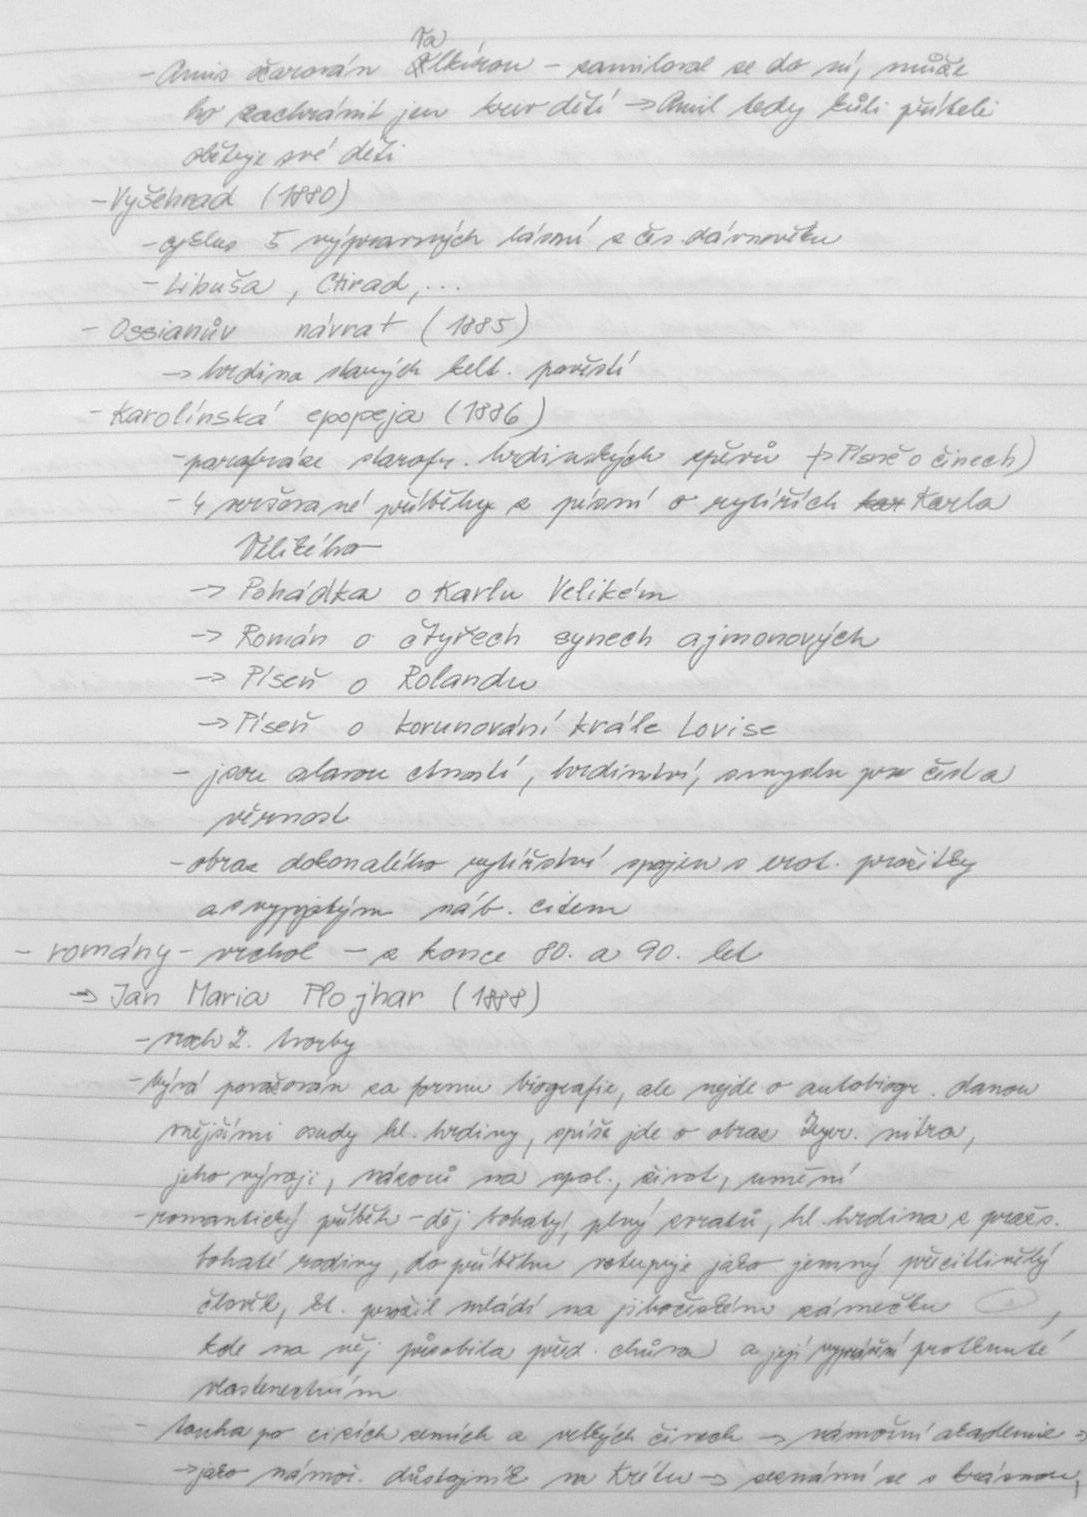 - Amis očarován Valkírou - zamiloval se do ní, může
ho zachránit jen krev dětí → Amil tedy kůli příteli
obětuje své děti
- Vyšehrad (1880)
- cyklus 5 výpravných básní z čes. dávnověku
- Libuša, Ctirad, ...
- Ossianův návrat (1885)
→ hrdina slavných kelt. pověstí
- Karolínská epopeja (1886)
- parafráze starofr. hrdinských zpěvů (→ Písně o činech)
- 4 veršované příběhy z písní o rytířích Karla
Velikého
→ Pohádka o Karlu Velikém
→ Román o čtyřech synech ajmonových
→ Píseň o Rolandu
→ Píseň o korunování krále Lovise
- jsou oslavou ctnosti, hrdinství, smyslu pro čest a
věrnost
- obraz dokonalého rytířství spojen s erot. prožitky
a s vypjatým náb. citem
- romány - vrchol - z konce 80. a 90. let
→ Jan Maria Plojhar (1888)
- vrch Z. tvorby
- bývá považován za formu biografie, ale nejde o autobiogr. danou
vnějšími osudy hl. hrdiny, spíše jde o obraz Zeyer. nitra,
jeho vývoji, názorů na spol., život, umění
- romantický příběh - děj bohatý, plný zvratů, hl. hrdina z pražs.
bohaté rodiny, do příběhu vstupuje jako jemný přecitlivělý
člověk, kt. prožil mládí na jihočeském zámečku ,
kde na něj působila před. chůva a její vyprávění protknuté
vlastenectvím
- touha po cizích zemích a velkých činech → námořní akademie →
→ jako námoř. důstojník na Krétu → seznámí se s krásnou,